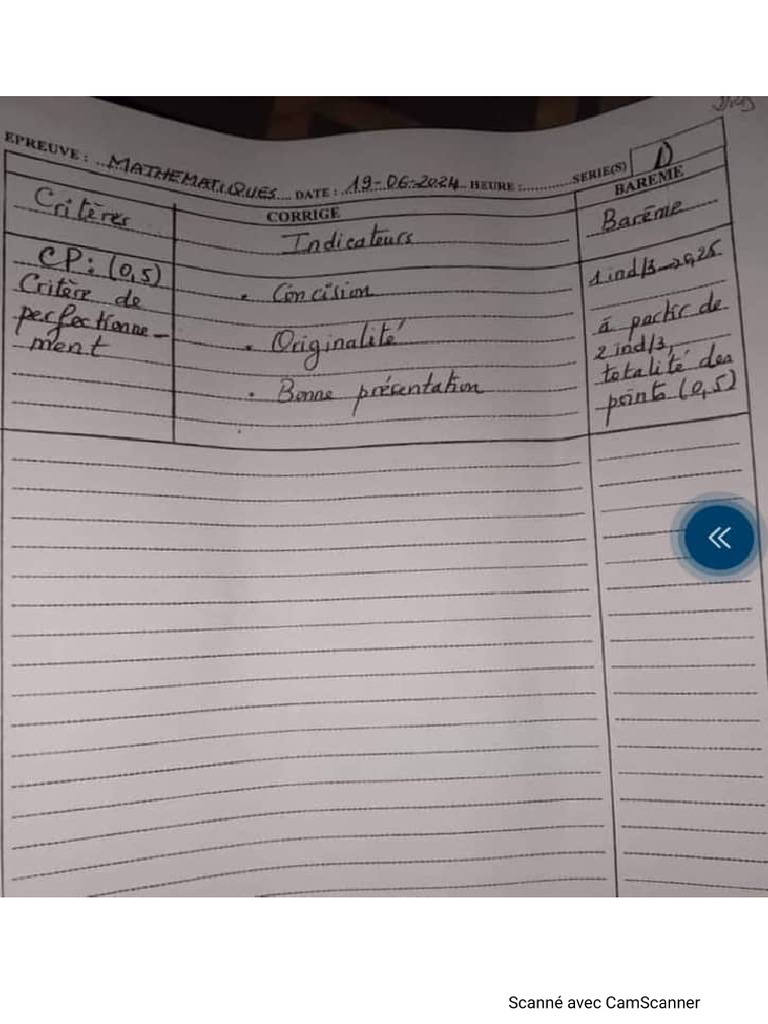 EPREUVE : MATHEMATIQUES DATE : 19-06-2024 HEURE : SERIE(S) D
CORRIGE BAREME
Critères Indicateurs Barême
CP : (0,5)
Critère de
perfectionne-
ment
• Concision
• Originalité
• Bonne présentation
1 ind/3 → 0,25
à partir de
2 ind/3,
totalité des
points (0,5)
Scanné avec CamScanner